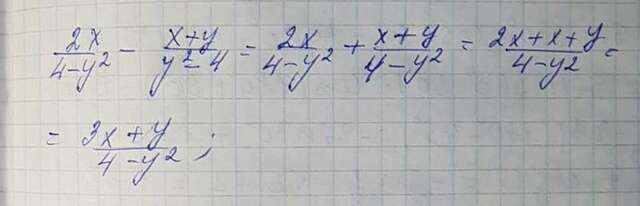 2x/(4-y²) - (x+y)/(y²-4) = 2x/(4-y²) + (x+y)/(4-y²) = (2x+x+y)/(4-y²) =
= (3x+y)/(4-y²) ;